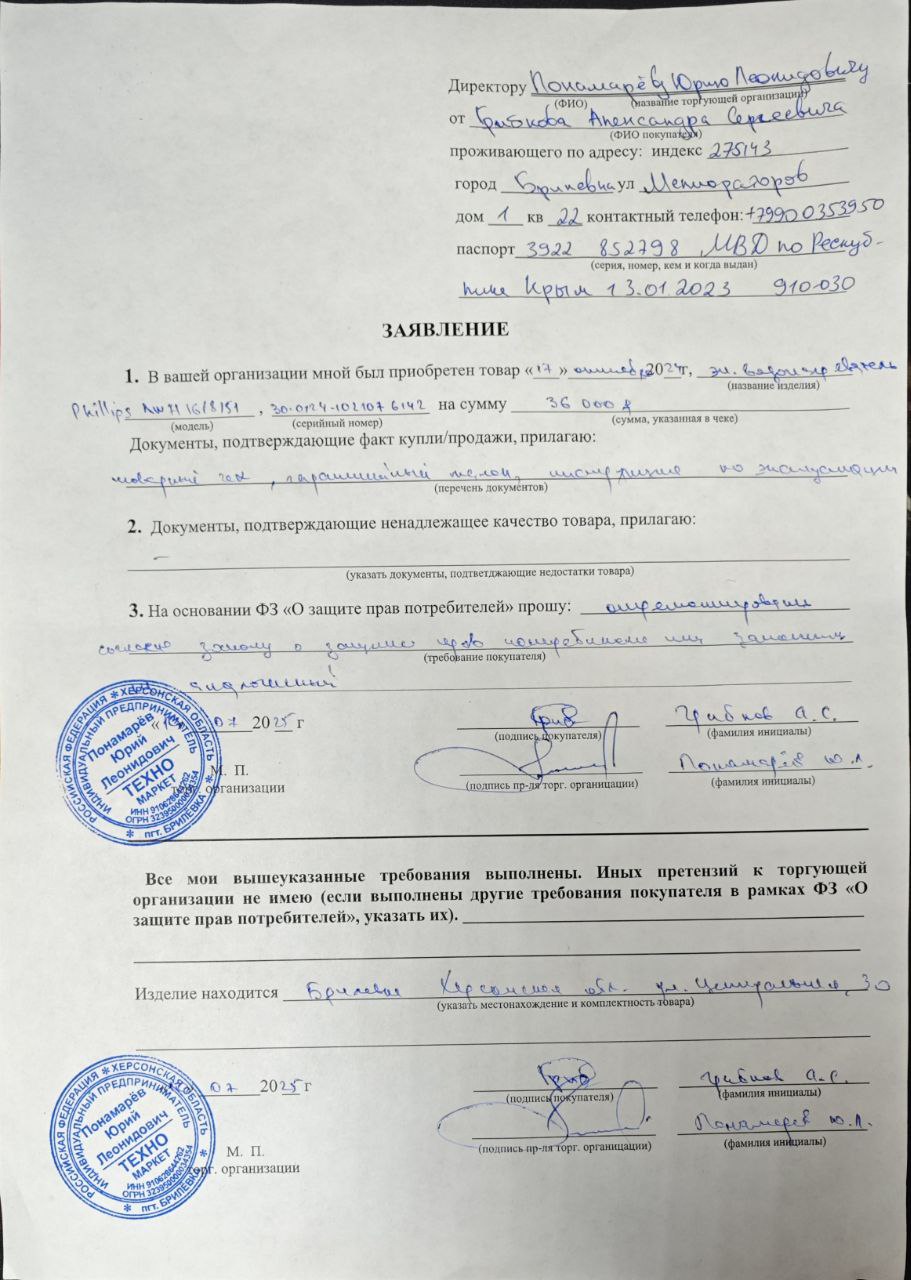 Директору Понамарёву Юрию Леонидовичу
(ФИО) (название торгующей организации)
от Грибкова Александра Сергеевича
(ФИО покупателя)
проживающего по адресу: индекс 275143
город Брилевка ул Мелиораторов
дом 1 кв 22 контактный телефон: +79900353950
паспорт 3922 852798 МВД по Респуб-
(серия, номер, кем и когда выдан)
лике Крым 13.01.2023 910-030
ЗАЯВЛЕНИЕ
1. В вашей организации мной был приобретен товар «17» октября 2024г, эл. водонагреватель
(название изделия)
Phillips AWH 16/8/151, 30-0124-102107 6142 на сумму 36 000 р
(модель) (серийный номер) (сумма, указанная в чеке)
Документы, подтверждающие факт купли/продажи, прилагаю:
товарный чек, гарантийный талон, инструкция по эксплуатации
(перечень документов)
2. Документы, подтверждающие ненадлежащее качество товара, прилагаю:
–
(указать документы, подтветджающие недостатки товара)
3. На основании ФЗ «О защите прав потребителей» прошу:
согласно закону о защите прав потребителей или заменить
(требование покупателя)
07 2025 г
Гриб Грибков А.С.
(подпись покупателя) (фамилия инициалы)
Понамарёв Ю.Л.
(подпись пр-ля торг. органицации) (фамилия инициалы)
М. П.
торг. организации
РОССИЙСКАЯ ФЕДЕРАЦИЯ * ХЕРСОНСКАЯ ОБЛАСТЬ * пгт. БРИЛЁВКА *
ИНДИВИДУАЛЬНЫЙ ПРЕДПРИНИМАТЕЛЬ
Понамарёв
Юрий
Леонидович
ТЕХНО
МАРКЕТ
ИНН 910628664262
ОГРН 323950000034354
Все мои вышеуказанные требования выполнены. Иных претензий к торгующей
организации не имею (если выполнены другие требования покупателя в рамках ФЗ «О
защите прав потребителей», указать их).
Изделие находится Брилевка Херсонская обл. ул. Центральная, 30
(указать местонахождение и комплектность товара)
07 2025 г
Гриб Грибков А.С.
(подпись покупателя) (фамилия инициалы)
Понамарёв Ю.Л.
(подпись пр-ля торг. органицации) (фамилия инициалы)
М. П.
торг. организации
РОССИЙСКАЯ ФЕДЕРАЦИЯ * ХЕРСОНСКАЯ ОБЛАСТЬ * пгт. БРИЛЁВКА *
ИНДИВИДУАЛЬНЫЙ ПРЕДПРИНИМАТЕЛЬ
Понамарёв
Юрий
Леонидович
ТЕХНО
МАРКЕТ
ИНН 910628664262
ОГРН 323950000034354